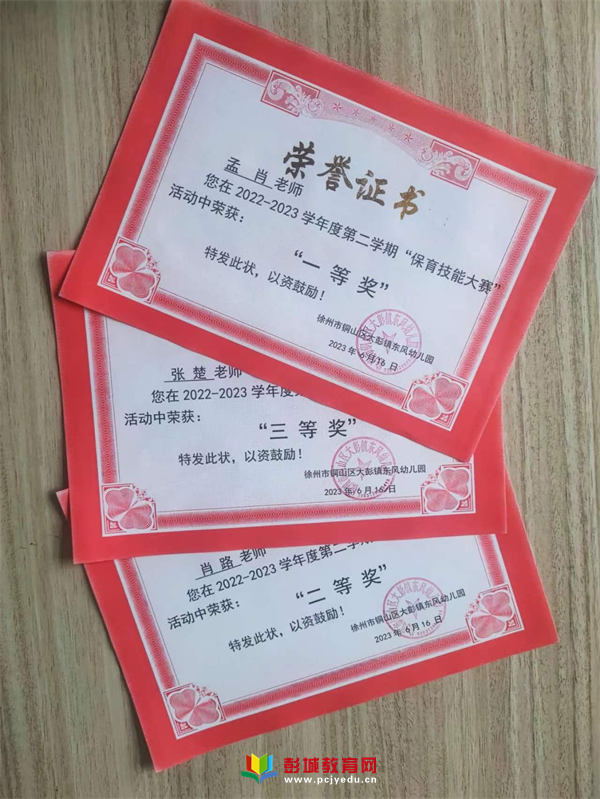 荣誉证书
孟肖 老师
您在 2022-2023 学年度第二学期“保育技能大赛”
活动中荣获：
“一等奖”
特发此状，以资鼓励！
徐州市铜山区大彭镇东风幼儿园
2023 年 6 月 16 日
张楚 老师
您在 2022-2023 学年度
活动中荣获：
“三等奖”
特发此状，以资鼓励！
徐州市铜山区大彭镇东风幼儿园
2023 年 6 月 16 日
肖路 老师
您在 2022-2023 学年度第二学期
活动中荣获：
“二等奖”
特发此状，以资鼓励！
徐州市铜山区大彭镇东风幼儿园
2023 年 6 月 16 日
彭城教育网
www.pcjyedu.cn